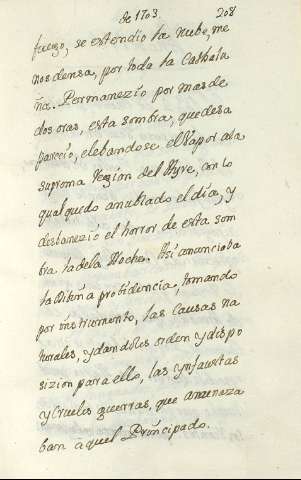 de 1703. 208
fuego, se estendio la nube, me
nos densa, por toda la Cathalu
ña. Permanezio por mas de
dos oras, esta sombra, que desa
parecio, elebandose el Vapor ala
suproma Region del Ayre, con lo
qual quedo anublado el dia, y
desbanezió el horror de esta som
bra la dela Noche. Asi anunciaba
la Dibina probidencia, tomando
por instrumento, las Causas na
turales, y dandoles orden y dispo
sizion para ello, las ynfaustas
y Crueles guerras, que amenaza
ban à quel Prinçipado.